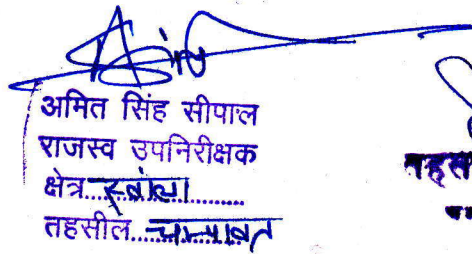 अमित सिंह सीपाल
राजस्व उपनिरीक्षक
क्षेत्र
तहसील चम्पावत
तहस